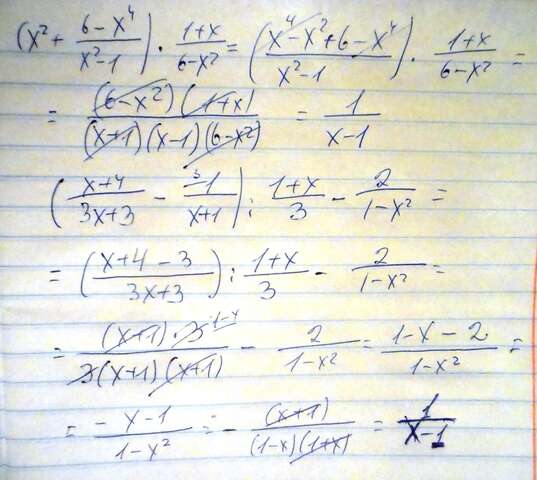 (x² + (6-x⁴)/(x²-1)) · (1+x)/(6-x²) = ((x⁴-x²+6-x⁴)/(x²-1)) · (1+x)/(6-x²) =
= ((6-x²)(1+x))/((x+1)(x-1)(6-x²)) = 1/(x-1)
((x+4)/(3x+3) - ³1/(x+1)) : (1+x)/3 - 2/(1-x²) =
= ((x+4-3)/(3x+3)) : (1+x)/3 - 2/(1-x²) =
= ((x+1)·3 ^(1-x))/(3(x+1)(x+1)) - 2/(1-x²) = (1-x-2)/(1-x²) =
= (-x-1)/(1-x²) = - (x+1)/((1-x)(1+x)) = 1/(x-1)